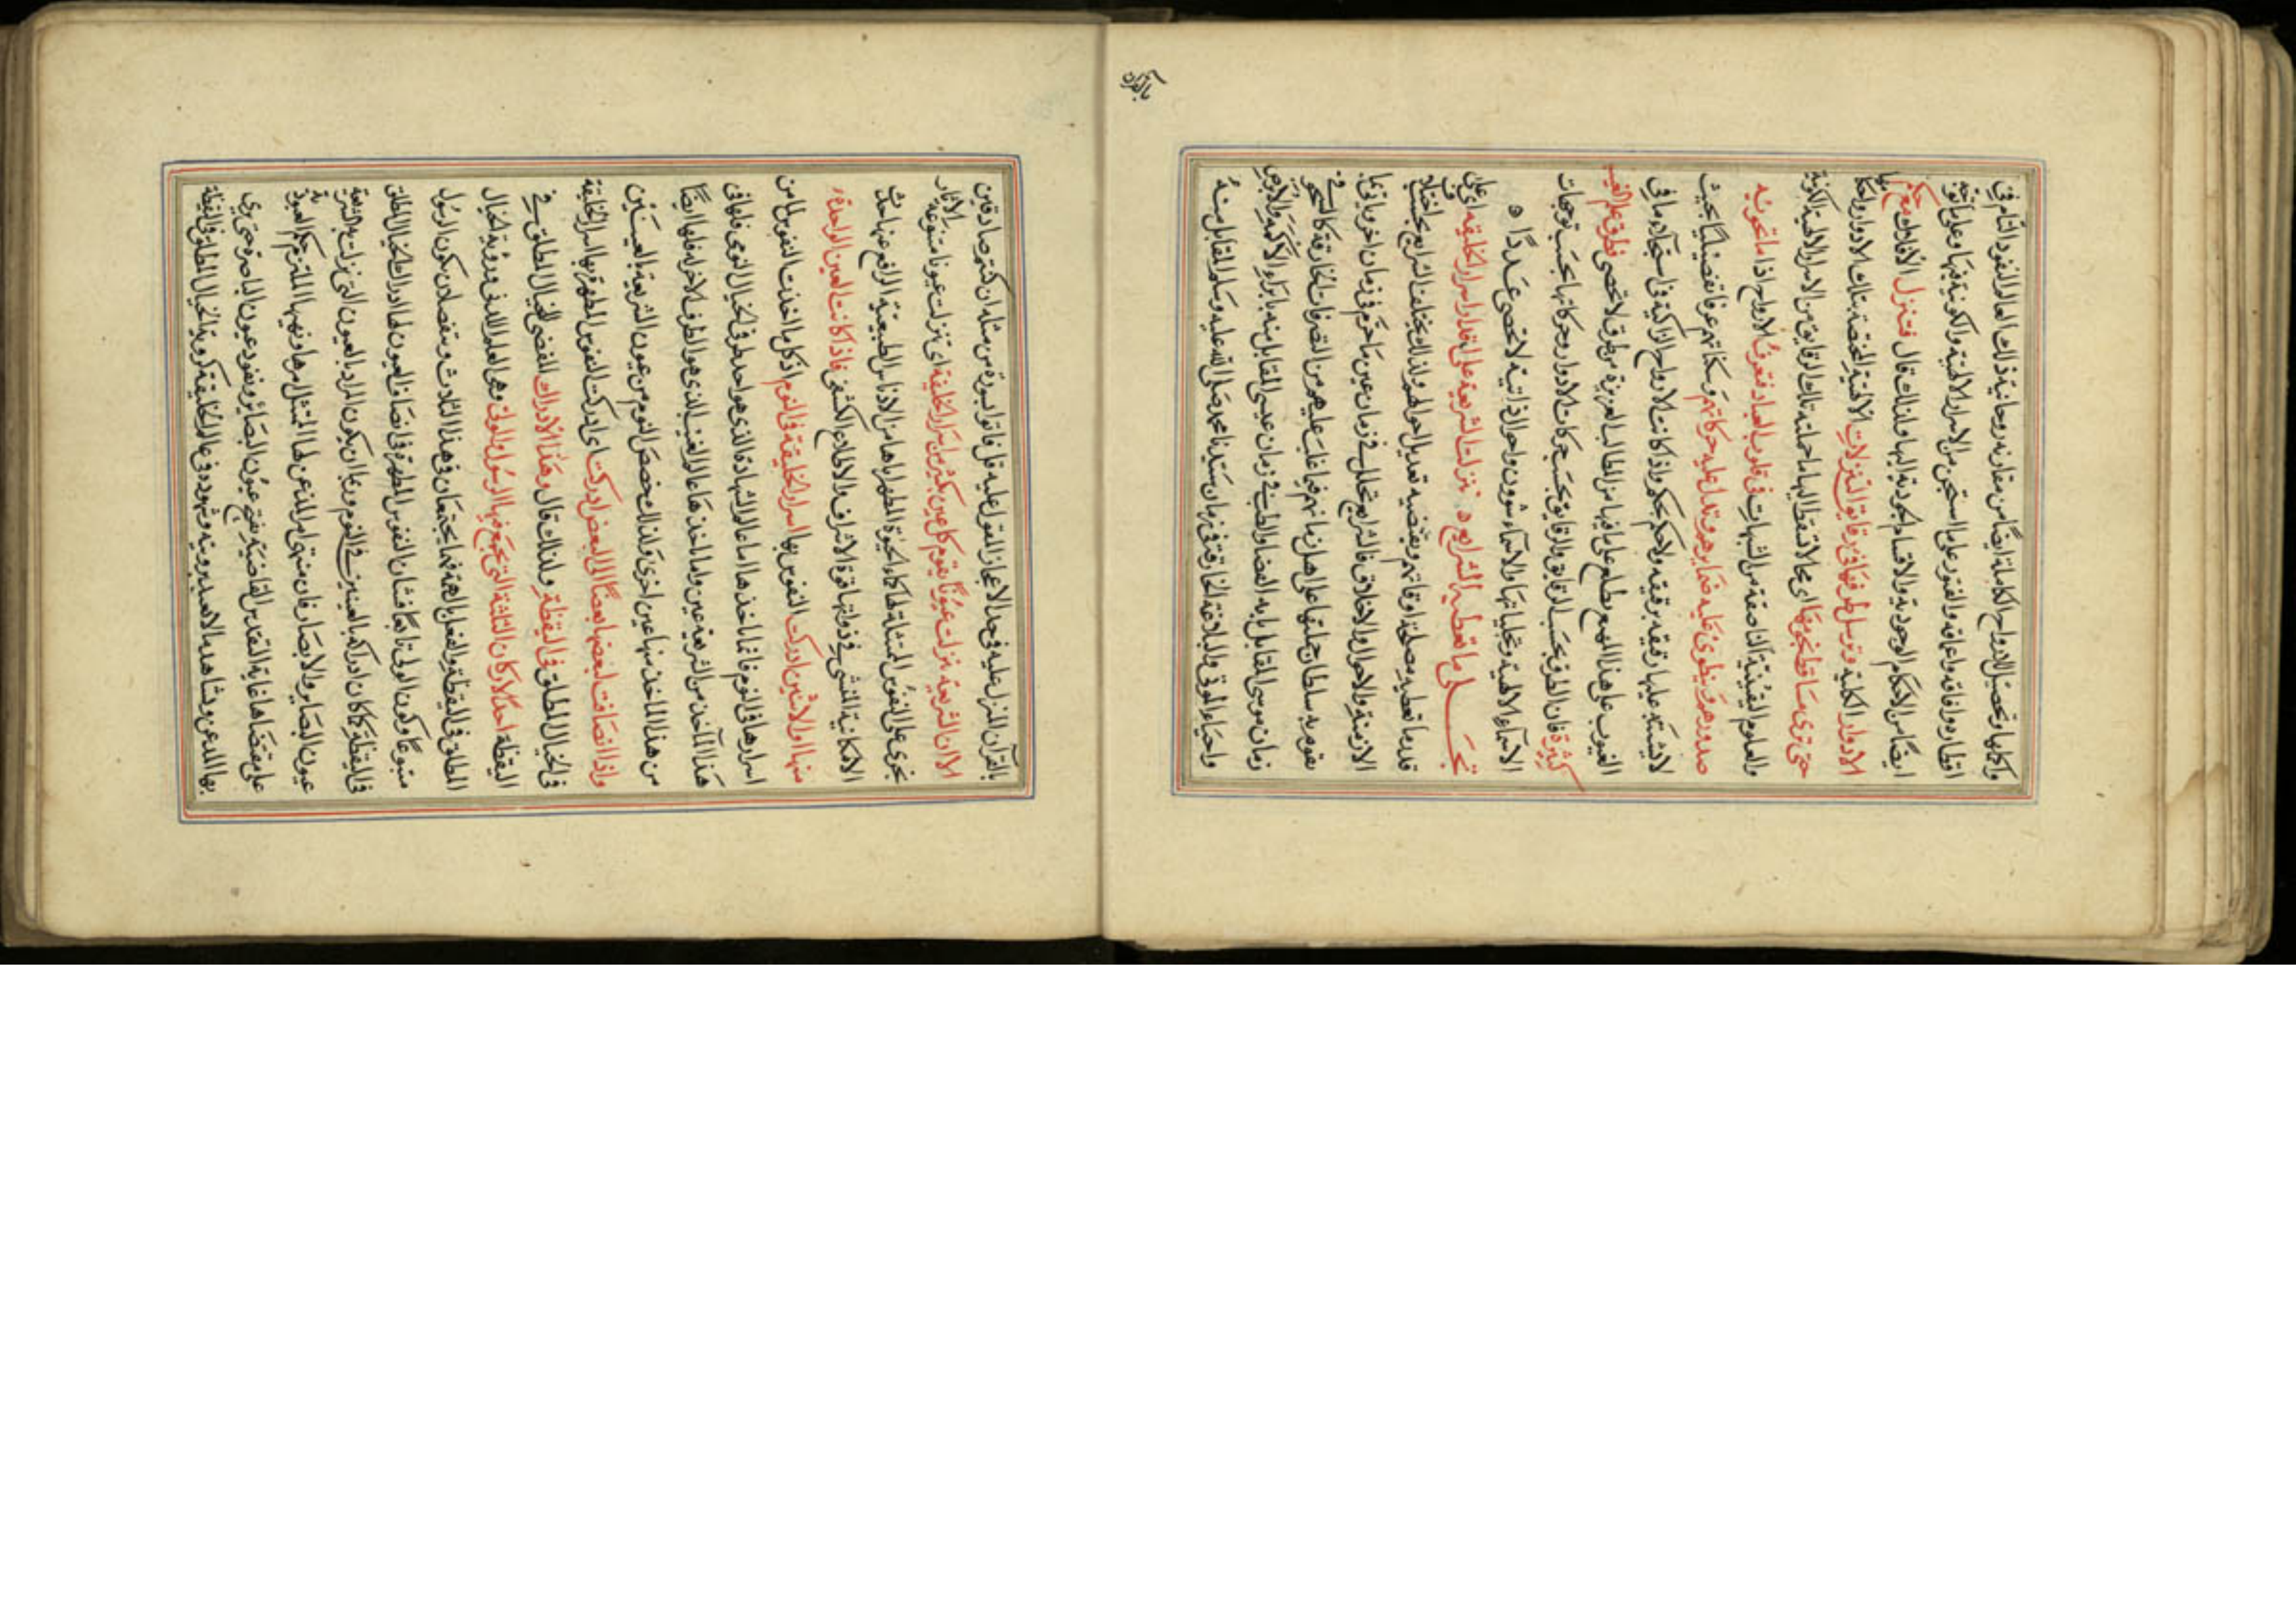 واكلها وتحصل الارواح الكاملة ايضًا من مقارنة روحانية ذلك العالم النفوذ التام في
اقطاره وافاقه واعماقه والعثور على ما استجن من الاسرار الالهية والكونية فيها وعلى ما توجه
ايضًا من الاحكام الوجودية والاقسام الجودية اليها ولذلك قال فتنزل الأفلاك
الادوار الكلية وترسل طرفها في رقايق التنزلات الالهية المختصة بتلك الادوار
حتى ترى مساقط نجومها اي محال تسقط اليها ما حملته تلك الرقايق من الاسرار الالهية الكونية
والعلوم اليقينية الناصعة من الشبهات في قلوب العباد فتعرف الارواح اذًا ما تحويه
صدورهم وتنطوي عليه ضمايرهم وتدل عليه حركاتهم وسكناتهم عرفانًا تفصيليًا بحيث
لا يشتبه عليها رقيقه برقيقه ولا حكم بحكم واذا كانت الارواح الزاكية في استجلاء ما في
الغيوب على هذا المهيع يطلع على ما فيها من المطالب العزيزة من طرق لا تحصى فطرق علم الغيب
كثيرة فان الطرق بحسب الرقايق والرقايق بحسب حركات الادوار وحركاتها بحسب توجهات
الاسماء الالهية وتجلياتها والاسماء شوون واحوال ذاتية لا تحصى عددًا ه
تجلـــي ما تعطيه الشرايع ه تنزلت الشريعة على قدر اسرار الخليقة اي على
قدر ما تعطيه مصلحة اوقاتهم وتقتضيه تعديل احوالهم ولذلك تختلف الشرايع بحسب اختلاف
الازمنة والاحوال والاخلاق فالشرايع تحلل في زمان عين ما حرم في زمان اخر وياتي بما
يقوم به سلطان حجتها على اهل زمانهم فيما غلب عليهم من التصرفات الخارقة كالسحر في
زمان موسى المقابل منه بابه العصا والطب في زمان عيسى المقابل منه بابراء الاكمه والابرص
واحياء الموتى والبلاغة الخارقة في زمان سيدنا محمد صلى الله عليه وسلم المقابل منه
بالقرآن
بالقرآن المنزل عليه في حد الاعجاز المقول عليه قل فاتوا بسورة من مثله ان كنتم صادقين
الا ان الشريعة تنزلت عيونًا يقوم كل عين بكثير من اسرار الخليقة اي تنزلت عيونا متنوعة الاثار
تجري على النفوس المتشاقة لماء الحيوة المطهر اياها من الادناس الطبيعية الرافع عنها حدث
الامكانية المنشي في ذواتها قوة الاشراف والاطلاع الكشفي فاذا كانت العين الواحدة
منها او الاثنين ادركت النفوس بها اسرار الخليقة في النوم اذ كل ما اخذت النفوس لها من
اسرارها في النوم فانما ماخذها اما عالم الشهادة الذي هو احد طرفي الخيال النومي فلها في
هذا الماخذ من الشريعة عين واما ماخذها عالم الغيب الذي هو الطرف الاخر له فلها ايضًا
من هذا الماخذ منها عين اخرى فلذلك خصص النوم من عيون الشريعة بالعينين
واذا انضافت لبعضها بعضًا الى البعض ادركت اي ادركت النفوس المطهرة بها اسرار الخليقة
في الخيال المطلق في اليقظة ولذلك قال وهذا الادراك القضي للخيال المطلق في
اليقظة احد الاركان الثلثة التي يجتمع فيها الرسول والولي وهي العلم اللدني ورؤية الخيال
المطلق في اليقظة والفعل بالهمة فهما يجتمعان في هذا الثلاث وينفصلان بكون الرسول
متبوعًا وكون الولي تابعًا فشان النفوس المطهرة في انضياف العيون لها ادراك الخيال المطلق
في اليقظة كما كان ادراكه بالعينين في النوم وربما ان يكون المراد بالعيون التي تنزلت به الشريعة
عيون البصاير والابصار فان منتهى امر المذعن لها الممتثل بامرها ونهيها الملتزم حكم العبودية
على مقتضاها غاية التقديس القاضية بفتح عيون البصاير ونفوذ عيون الباصرة حتى يرى
بها المدعن ويشاهد ما لا يعهد برويته وشهوده في عالم الخليقة كروية الخيال المطلق في اليقظة